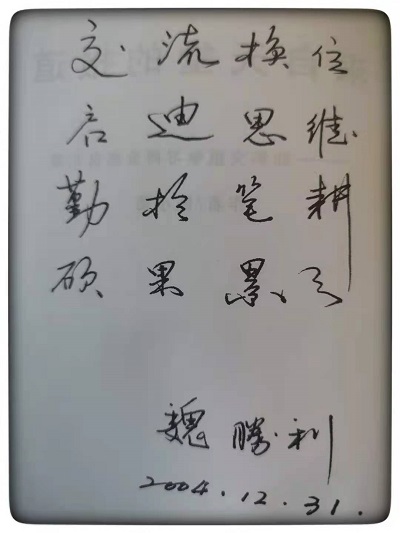 交流换位
启迪思维
勤於笔耕
硕果累々
魏勝利
2004.12.31.